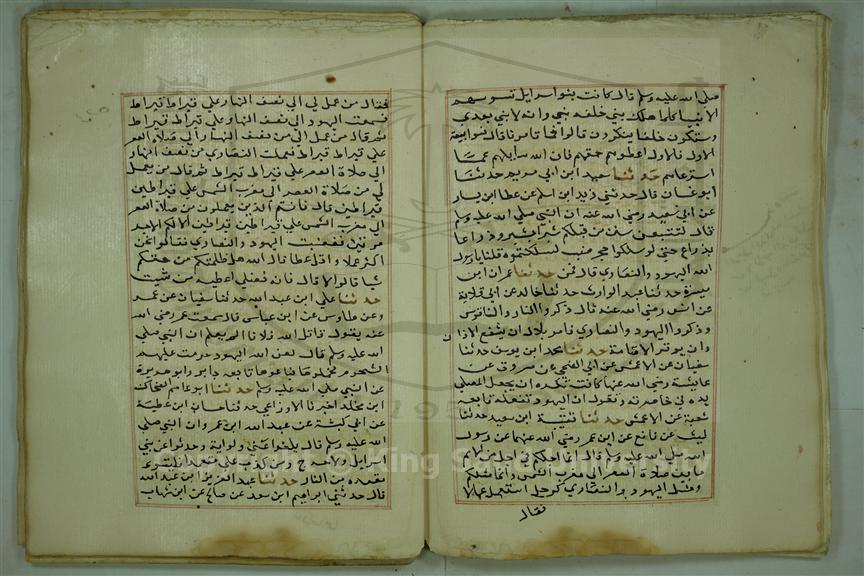 صلى الله عليه وسلم قال كانت بنوا سرايل تسوسهم
الانبيا كلما هلك بني خلفه بني وانه لا بني بعدي
وستكون خلفا فيكثرون قالوا فما تامرنا قال فوا ببيعة
الاول فالاول اعطوهم حقهم فان الله سايلهم عما
استرعاهم حدثنا سعيد ابن ابي مريم حدثنا
ابو غسان قال حدثني زيد ابن اسلم عن عطا ابن يسار
عن ابي سعيد رضي الله عنه ان النبي صلي الله عليه وسلم
قال لتتبعن سنن من قبلكم شبرا بشبر وذراعا
بذراع حتي لو سلكوا جحر ضب لسلكتموه قلنا يا رسول
الله اليهود والنصاري قال فمن حدثنا عمران ابن
ميسرة حدثنا عبد الوارث حدثنا خالد عن ابي قلابة
عن انس رضي الله عنه قال ذكروا النار والناقوس
وذكروا اليهود والنصاري فامر بلال ان يشفع الاذان
وان يوتر الاقامة حدثنا محمد ابن يوسف حدثنا
سفيان عن الاعمش عن ابي الضحي عن مسروق عن
عايشة رضي الله عنها كانت تكره ان يجعل المصلي
يده في خاصرته وتقول ان اليهود تفعله تابعه
شعبة عن الاعمش حدثنا قتيبة ابن سعيد حدثنا
ليث عن نافع عن ابن عمر رضي الله عنهما عن رسول
الله صلي الله عليه وسلم قال انما اجلكم في اجل من خلا من الامم
ما بين صلاة العصر الي مغرب الشمس وانما مثلكم
ومثل اليهود والنصاري كرجل استعمل عمالا
فقال
فقال من عمل لي الي نصف النهار علي قيراط قيراط
فعملت اليهود الي نصف النهار علي قيراط قيراط
ثم قال من يعمل لي من نصف النهار الي صلاة العصر
علي قيراط قيراط فعملت النصاري من نصف النهار
الي صلاة العصر علي قيراط قيراط ثم قال من يعمل
لي من صلاة العصر الي مغرب الشمس علي قيراطين
قيراطين قال فانتم الذين يعملون من صلاة العصر
الي مغرب الشمس علي قيراطين قيراطين الا لكم الاجر
مرتين فغضبت اليهود والنصاري فقالوا نحن
اكثر عملا واقل عطا قال هل ظلمتكم من حقكم
شيا قالوا لا قال فانه فضلي اعطيه من شيت
حدثنا علي ابن عبد الله حدثنا سفيان عن عمر
وعن طاوس عن ابن عباس قال سمعت عمر رضي الله
عنه يقول قاتل الله فلانا الم يعلم ان النبي صلي
الله عليه وسلم قال لعن الله اليهود حرمت عليهم
الشحوم فجملوها فباعوها تابعه جابر وابو هريرة
عن النبي صلي الله عليه وسلم حدثنا ابو عاصم الضحاك
ابن مخلد اخبرنا الاوزاعي حدثنا حسان ابن عطية
عن ابي كبشة عن عبد الله ابن عمر وان النبي صلي
الله عليه وسلم قال بلغوا عني ولو اية وحدثوا عن بني
اسرايل ولا حرج ومن كذب علي متعمدا فليتبوء
مقعده من النار حدثنا عبد العزيز ابن عبد الله
قال حدثني ابراهيم ابن سعد عن صالح عن ابن شهاب
Copyright © King Saud University